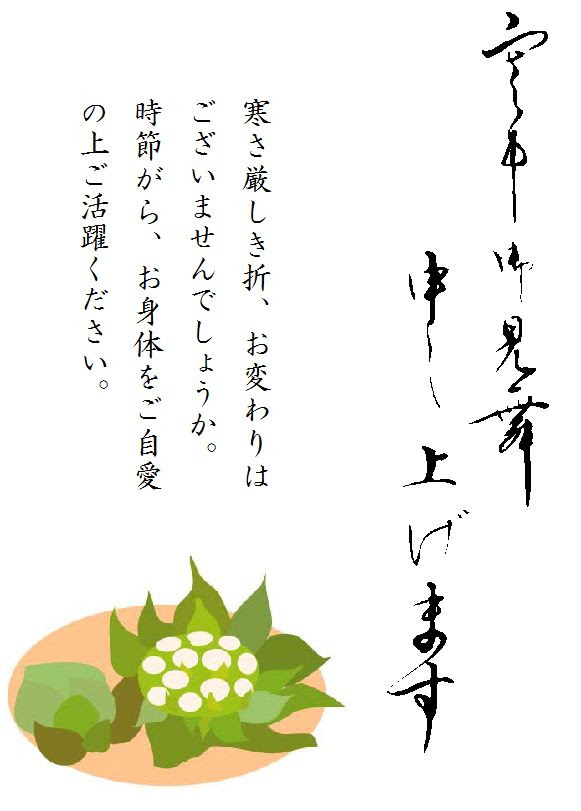 寒中御見舞
申し上げます
寒さ厳しき折、お変わりは
ございませんでしょうか。
時節がら、お身体をご自愛
の上ご活躍ください。